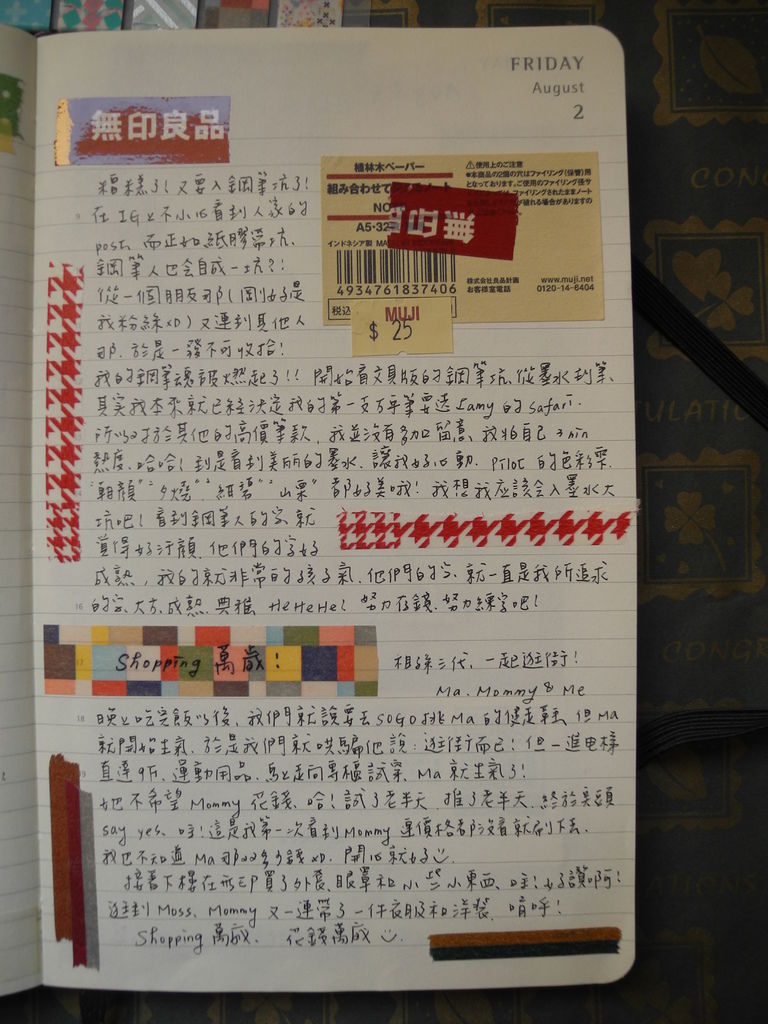 FRIDAY
August
2
無印良品
植林木ペーパー
組み合わせて
A5・32
インドネシア製
4934761837406
税込
⚠使用上のご注意
●本商品の2個の穴はファイリング(保管)用
となっております。ご使用のファイリング後サ
ファイリングされたままノート
が破れる場合がありますの
株式会社良品計画
お客様室電話
www.muji.net
0120-14-6404
無印
MUJI
$ 25
糟糕了!又要入鋼筆坑了!
在IG上不小心看到人家的
post, 而正如紙膠帶坑,
鋼筆人也會自成一坑?!
從一個朋友那(剛好是
我粉絲xD)又連到其他人
那,於是一發不可收拾!
我的鋼筆魂被燃起了!! 開始看文具版的鋼筆坑,從墨水到筆,
其實我本來就已經決定我的第一支万年筆要選 Lamy 的 safari.
所以對於其他的高價筆款,我並沒有多加留意,我怕自己 3 min
熱度,哈哈!到是看到美麗的墨水,讓我好心動. PILOT 的色彩雫
"朝顏" "夕燒" "紺碧" "山栗" 都好美哦!我想我應該會入墨水大
坑吧!看到鋼筆人的字,就
覺得好汗顏,他們的字好
成熟,我的就非常的孩子氣,他們的字,就一直是我所追求
的字,大方,成熟,典雅 HeHeHe! 努力存錢,努力練字吧!
Shopping 萬歲!
祖孫三代,一起逛街!
Ma, Mommy & Me
晚上吃完飯以後,我們就說要去SOGO挑Ma的健走鞋,但Ma
就開始生氣,於是我們就哄騙他說:逛街而已!但一進电梯
直達9F,運動用品,馬上走向專櫃試穿,Ma就生氣了!
她不希望 Mommy 花錢,哈!試了老半天,推了老半天,終於
say yes, 哇!這是我第一次看到Mommy 連價格都沒看就刷下去,
我也不知道 Ma那双多少錢xD. 開心就好
接著下樓在無印買了外套,眼罩和小些小東西,哇!好讚啊!
逛到 Moss, Mommy 又一連帶了一件衣服和洋裝,唷呼!
Shopping 萬歲, 花錢萬歲